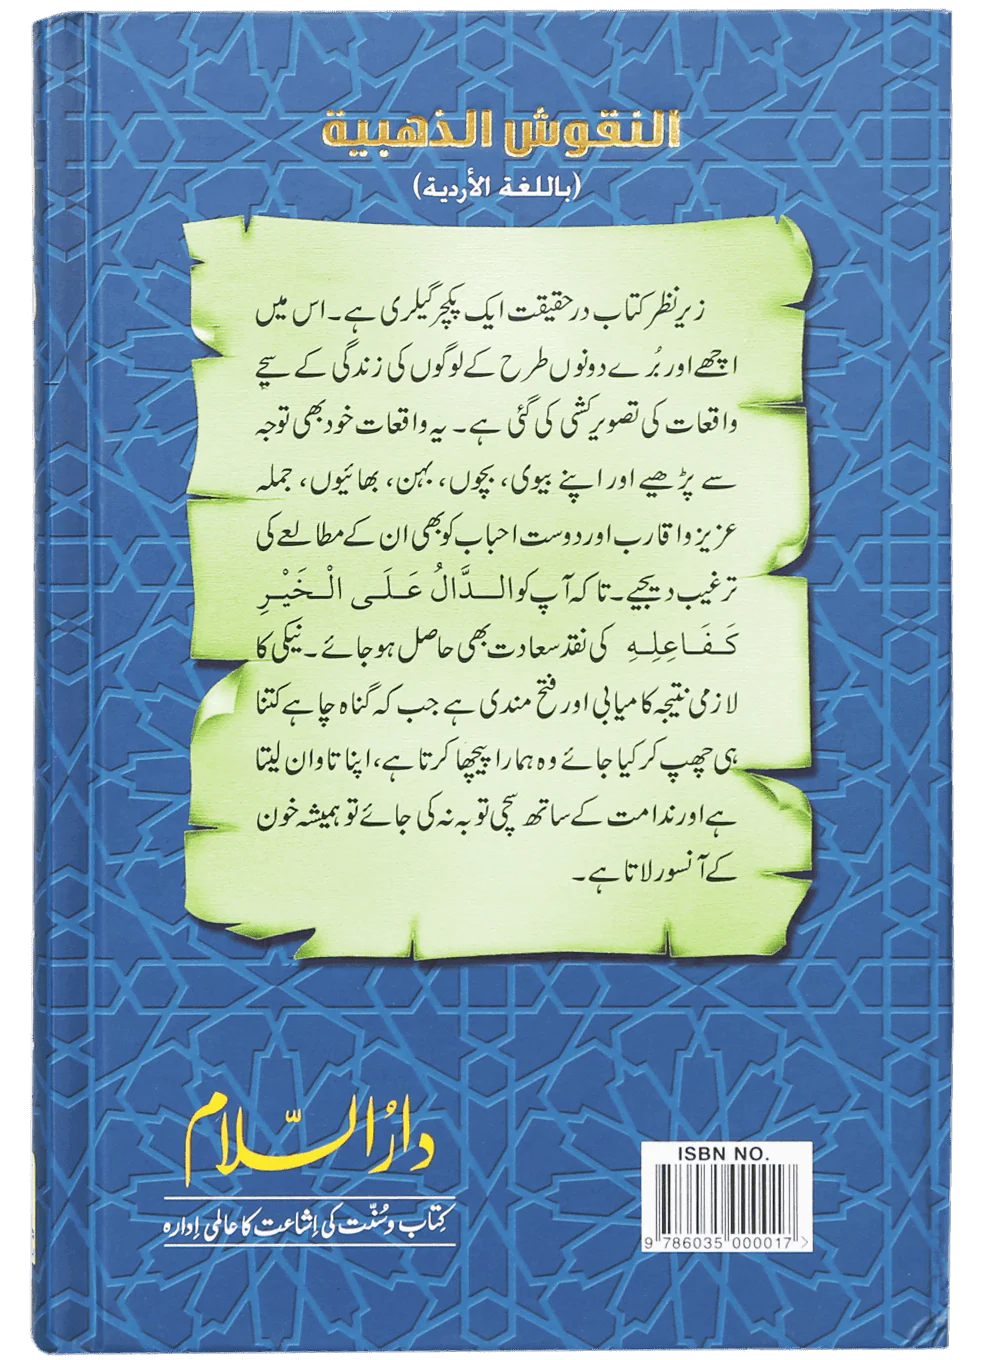 النقوش الذهبية
(باللغة الأردية)
زیرِ نظر کتاب در حقیقت ایک پکچر گیلری ہے۔ اس میں
اچھے اور بُرے دونوں طرح کے لوگوں کی زندگی کے سچے
واقعات کی تصویر کشی کی گئی ہے۔ یہ واقعات خود بھی توجہ
سے پڑھیے اور اپنے بیوی، بچوں، بہن، بھائیوں، جملہ
عزیز و اقارب اور دوست احباب کو بھی ان کے مطالعے کی
ترغیب دیجیے۔ تا کہ آپ کو الدَّالُ عَلَى الْخَيْرِ
كَفَاعِلِهِ کی نقد سعادت بھی حاصل ہو جائے۔ نیکی کا
لازمی نتیجہ کامیابی اور فتح مندی ہے جب کہ گناہ چاہے کتنا
ہی چھپ کر کیا جائے وہ ہمارا پیچھا کرتا ہے، اپنا تاوان لیتا
ہے اور ندامت کے ساتھ سچی توبہ نہ کی جائے تو ہمیشہ خون
کے آنسو رلاتا ہے۔
دارُ السّلام
کِتاب و سُنّت کی اِشاعت کا عالمی اِدارہ
ISBN NO.
9 786035 000017 >